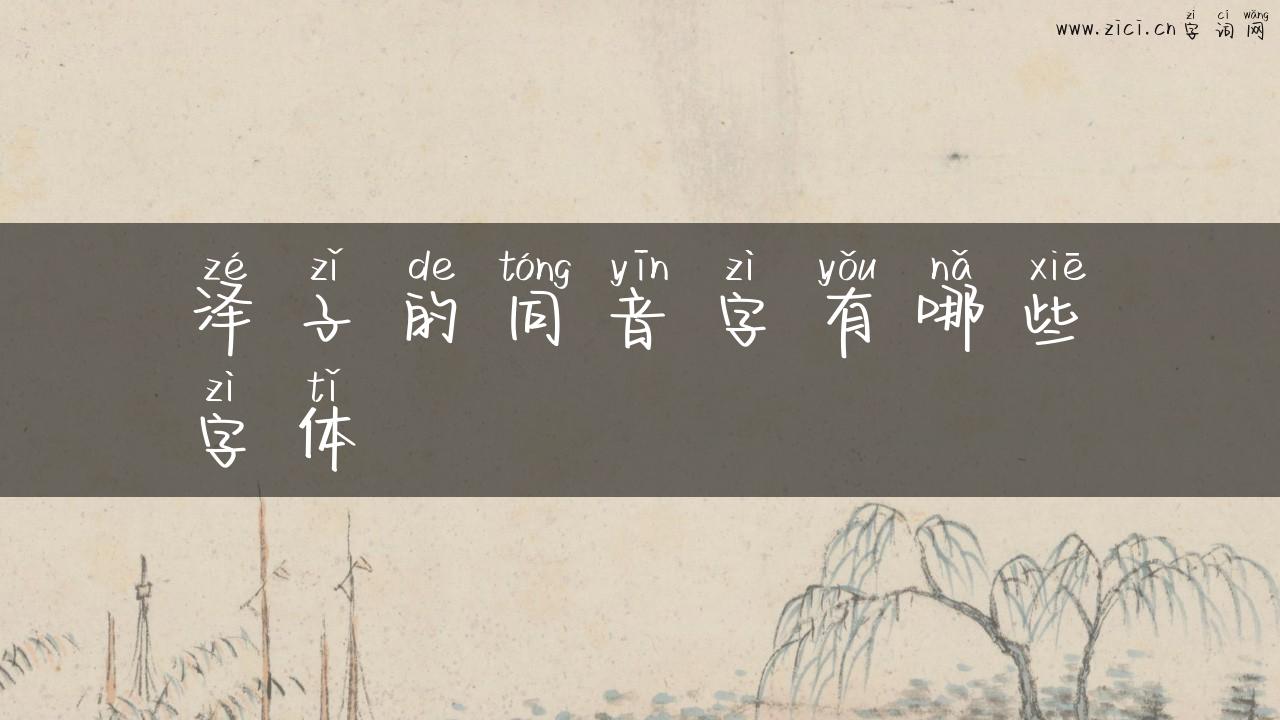 zì cí wǎng
www.zici.cn 字词网
zé zǐ de tóng yīn zì yǒu nǎ xiē
泽子的同音字有哪些
zì tǐ
字体